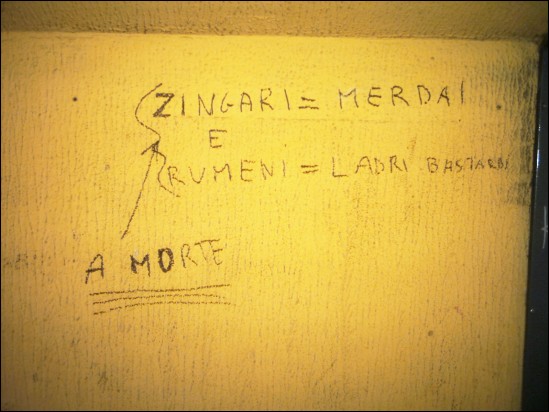 ZINGARI = MERDA!
E
RUMENI = LADRI BASTARDI
A MORTE